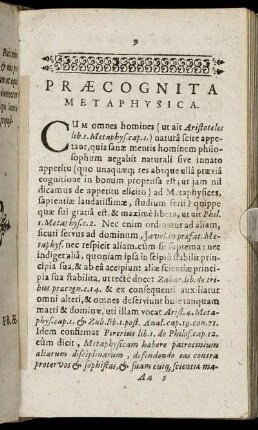 9
PRÆCOGNITA
METAPHYSICA.
CUM omnes homines (ut ait Aristoteles
lib.1. Metaphys. cap.1.) naturâ scire appe-
tant, quis sanæ mentis hominem philo-
sophum negabit naturali sive innato
appetitu (quo unaquæq; res absque ullâ præviâ
cognitione in bonum propensa est, ut jam nil
dicamus de appetitu elicito) ad Metaphysices,
sapientiæ laudatissimæ, studium ferri? quippe
quæ sui gratiâ est, & maximè libera, ut ait Phil.
1. Metaphys. c.2. Nec enim ordinatur ad aliam,
sicuti servus ad dominum, Javel. in præfat. Me-
taphys. nec respicit aliam. cum sit suprema: nec
indiget aliâ, quoniam ipsa in seipsâ stabilit princi-
pia sua, & ab eâ accipiunt aliæ scientiæ princi-
pia sua stabilita, ut rectè docet Zabar. lib. de tri-
bus præcogn. c.14. & ex consequenti auxiliatur
omni alteri, & omnes deserviunt huic tanquam
matri & dominæ, uti illam vocat Arist. 4. Met-
aph. cap.1. & Zab. lib. 1. post. Anal. cap. 19. con. 71.
Idem confirmat Pererius lib. 1. de Philos. cap. 12.
cum dicit, Metaphysicam habere patrocinium
aliarum disciplinarum, defendendo eas contra
protervos & sophistas, & suam cuiq; scientiæ ma-
Aa 5